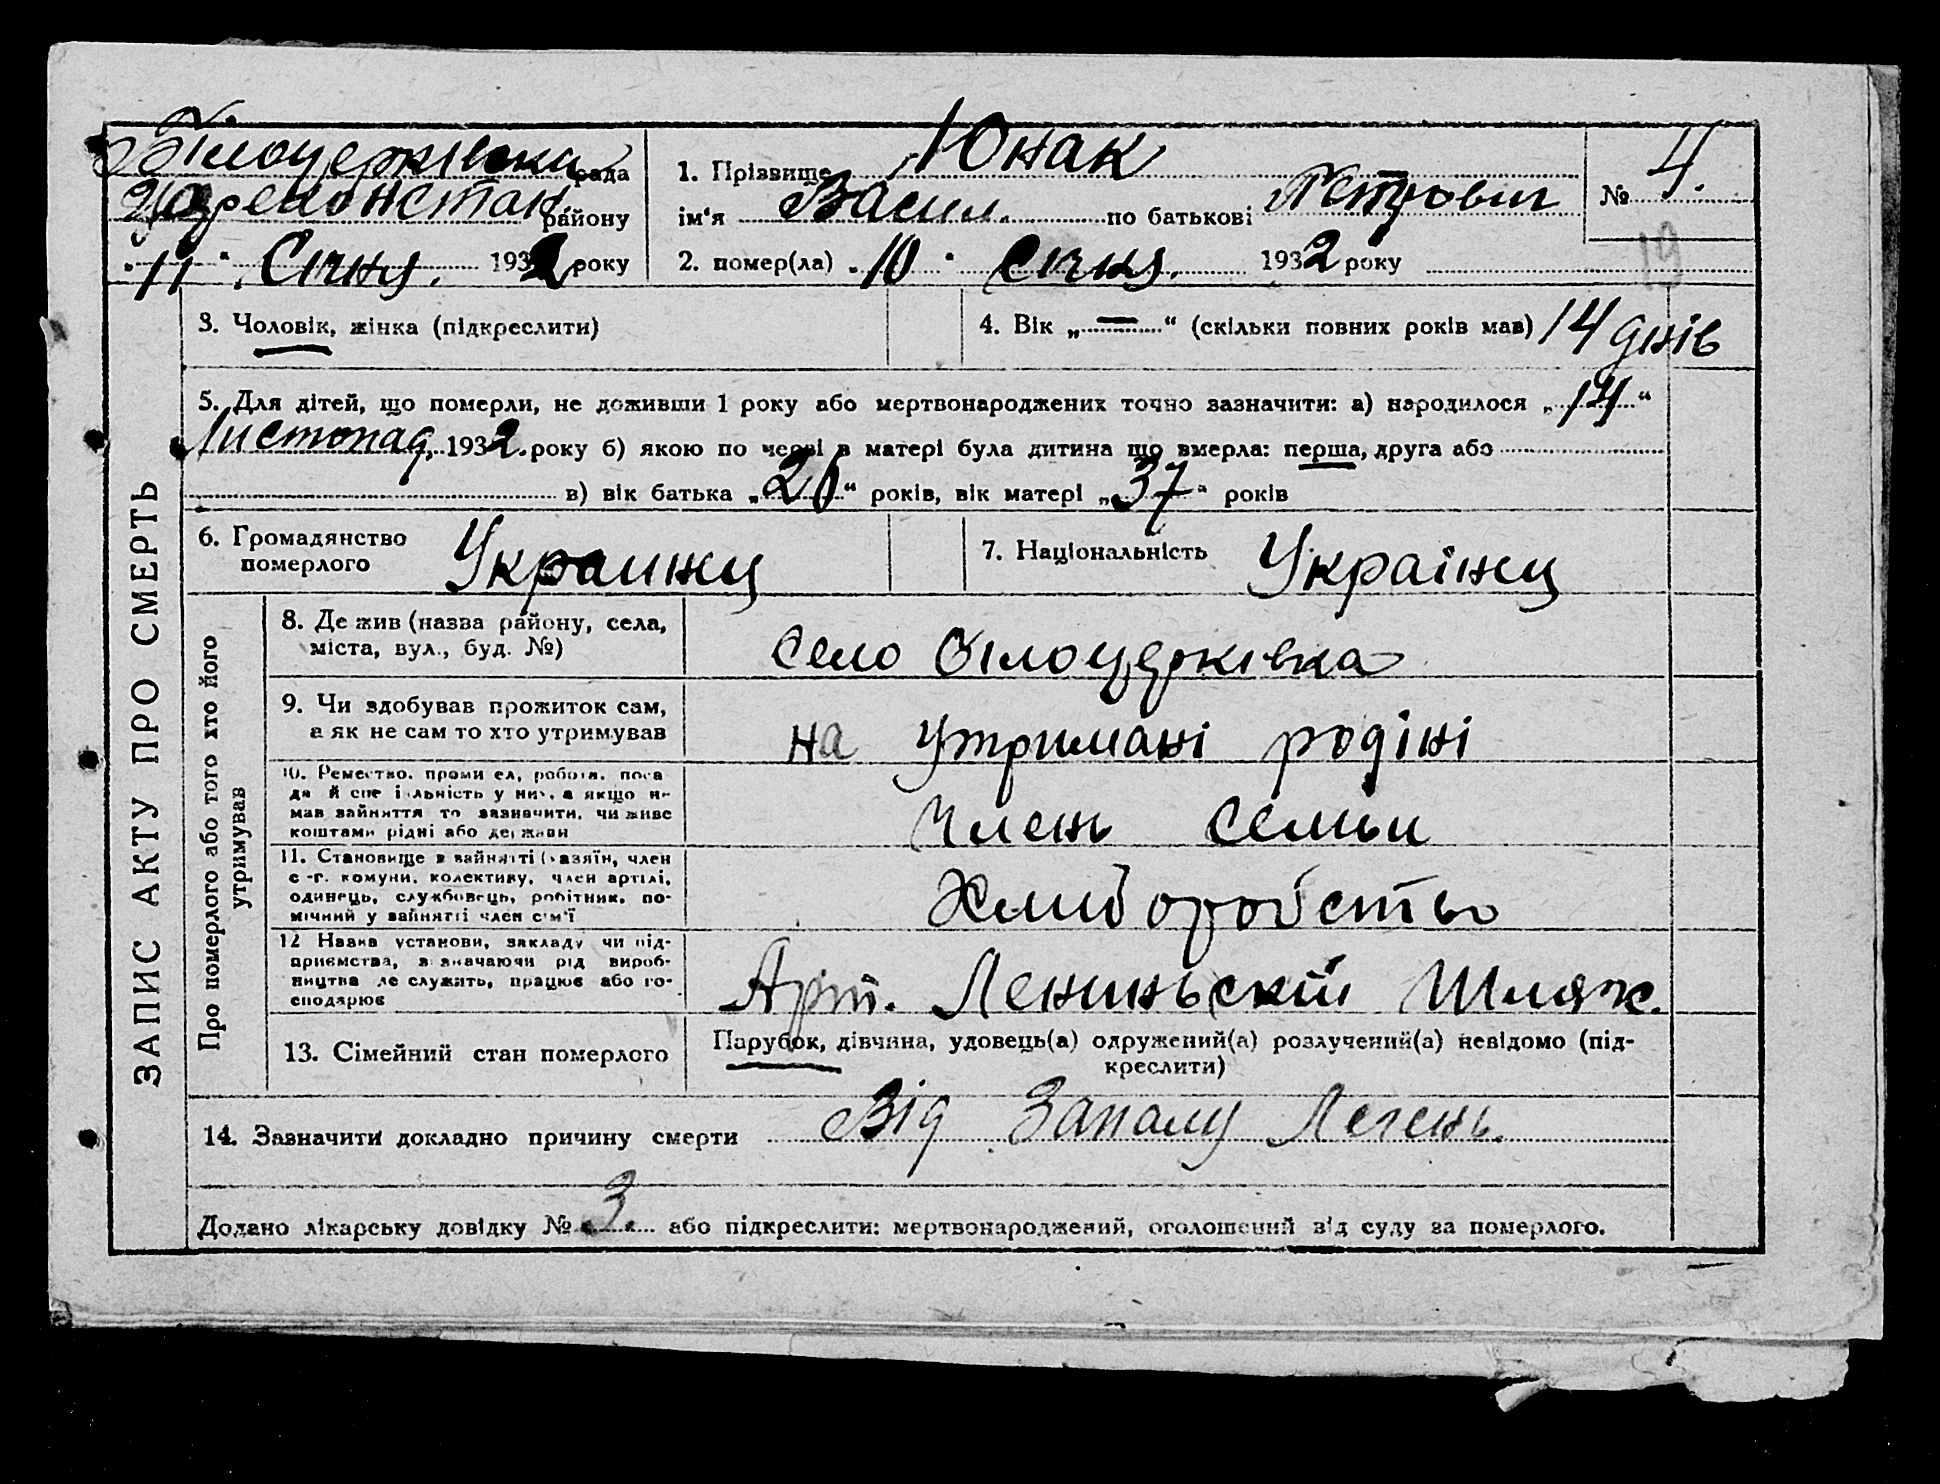 Білоцерківська рада
Цареконстан. району
"11" Січня. 1932 року
1. Прізвище Юнак
ім'я Васил. по батькові Петрович
№ 4.
19
2. помер(ла) "10" січня. 1932 року
3. Чоловік, жінка (підкреслити)
4. Вік „—“ (скільки повних років мав) 14 днів
5. Для дітей, що померли, не доживши 1 року або мертвонароджених точно зазначити: а) народилося „14“
Листопад. 1932. року б) якою по черзі в матері була дитина що вмерла: перша, друга або
в) вік батька „20“ років, вік матері „37“ років
6. Громадянство
померлого Украинец
7. Національність Українец
ЗАПИС АКТУ ПРО СМЕРТЬ
Про померлого або того хто його
утримував
8. Де жив (назва району, села,
міста, вул., буд. №) село білоцерківка
9. Чи здобував прожиток сам,
а як не сам то хто утримував на утримані родіні
10. Ремество, промисел, робота, поса
да й спеціяльність у них, а якщо не
мав зайняття то зазначити, чи живе
коштами рідні або держави Члень семьи
11. Становище в зайнятті (хазяїн, член
с.-г. комуни, колективу, член артілі,
одинець, службовець, робітник, по-
мічний у зайнятті член сім'ї Хлиборобство
12 Назва установи, закладу чи під-
приємства, зазначаючи рід вироб-
ництва де служить, працює або го-
сподарює Арт. Лениньский Шлях.
13. Сімейний стан померлого
Парубок, дівчина, удовець(а) одружений(а) розлучений(а) невідомо (під-
креслити)
14. Зазначити докладно причину смерти Від Запалу Легень.
Додано лікарську довідку № 3. або підкреслити: мертвонароджений, оголошений від суду за померлого.